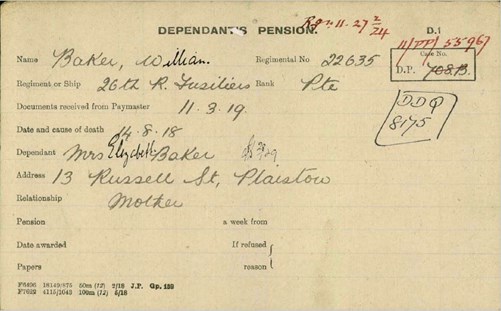 DEPENDANT'S PENSION. D.1
11.27 2/24
11/DP/ 5596
Name Baker, William. Regimental No 22635
Case No.
D.P. 708.B.
Regiment or Ship 26th R. Fusiliers Rank Pte
Documents received from Paymaster 11.3.19.
DDQ
8175
Date and cause of death 14.8.18
Dependant Mrs Elizabeth Baker
Address 13 Russell St, Plaistow
Relationship Mother
Pension a week from
Date awarded If refused
Papers reason
F6496 16149/875 50m (12) 2/18 J.P. Gp. 133
F7622 4115/1043 100m (12) 5/18